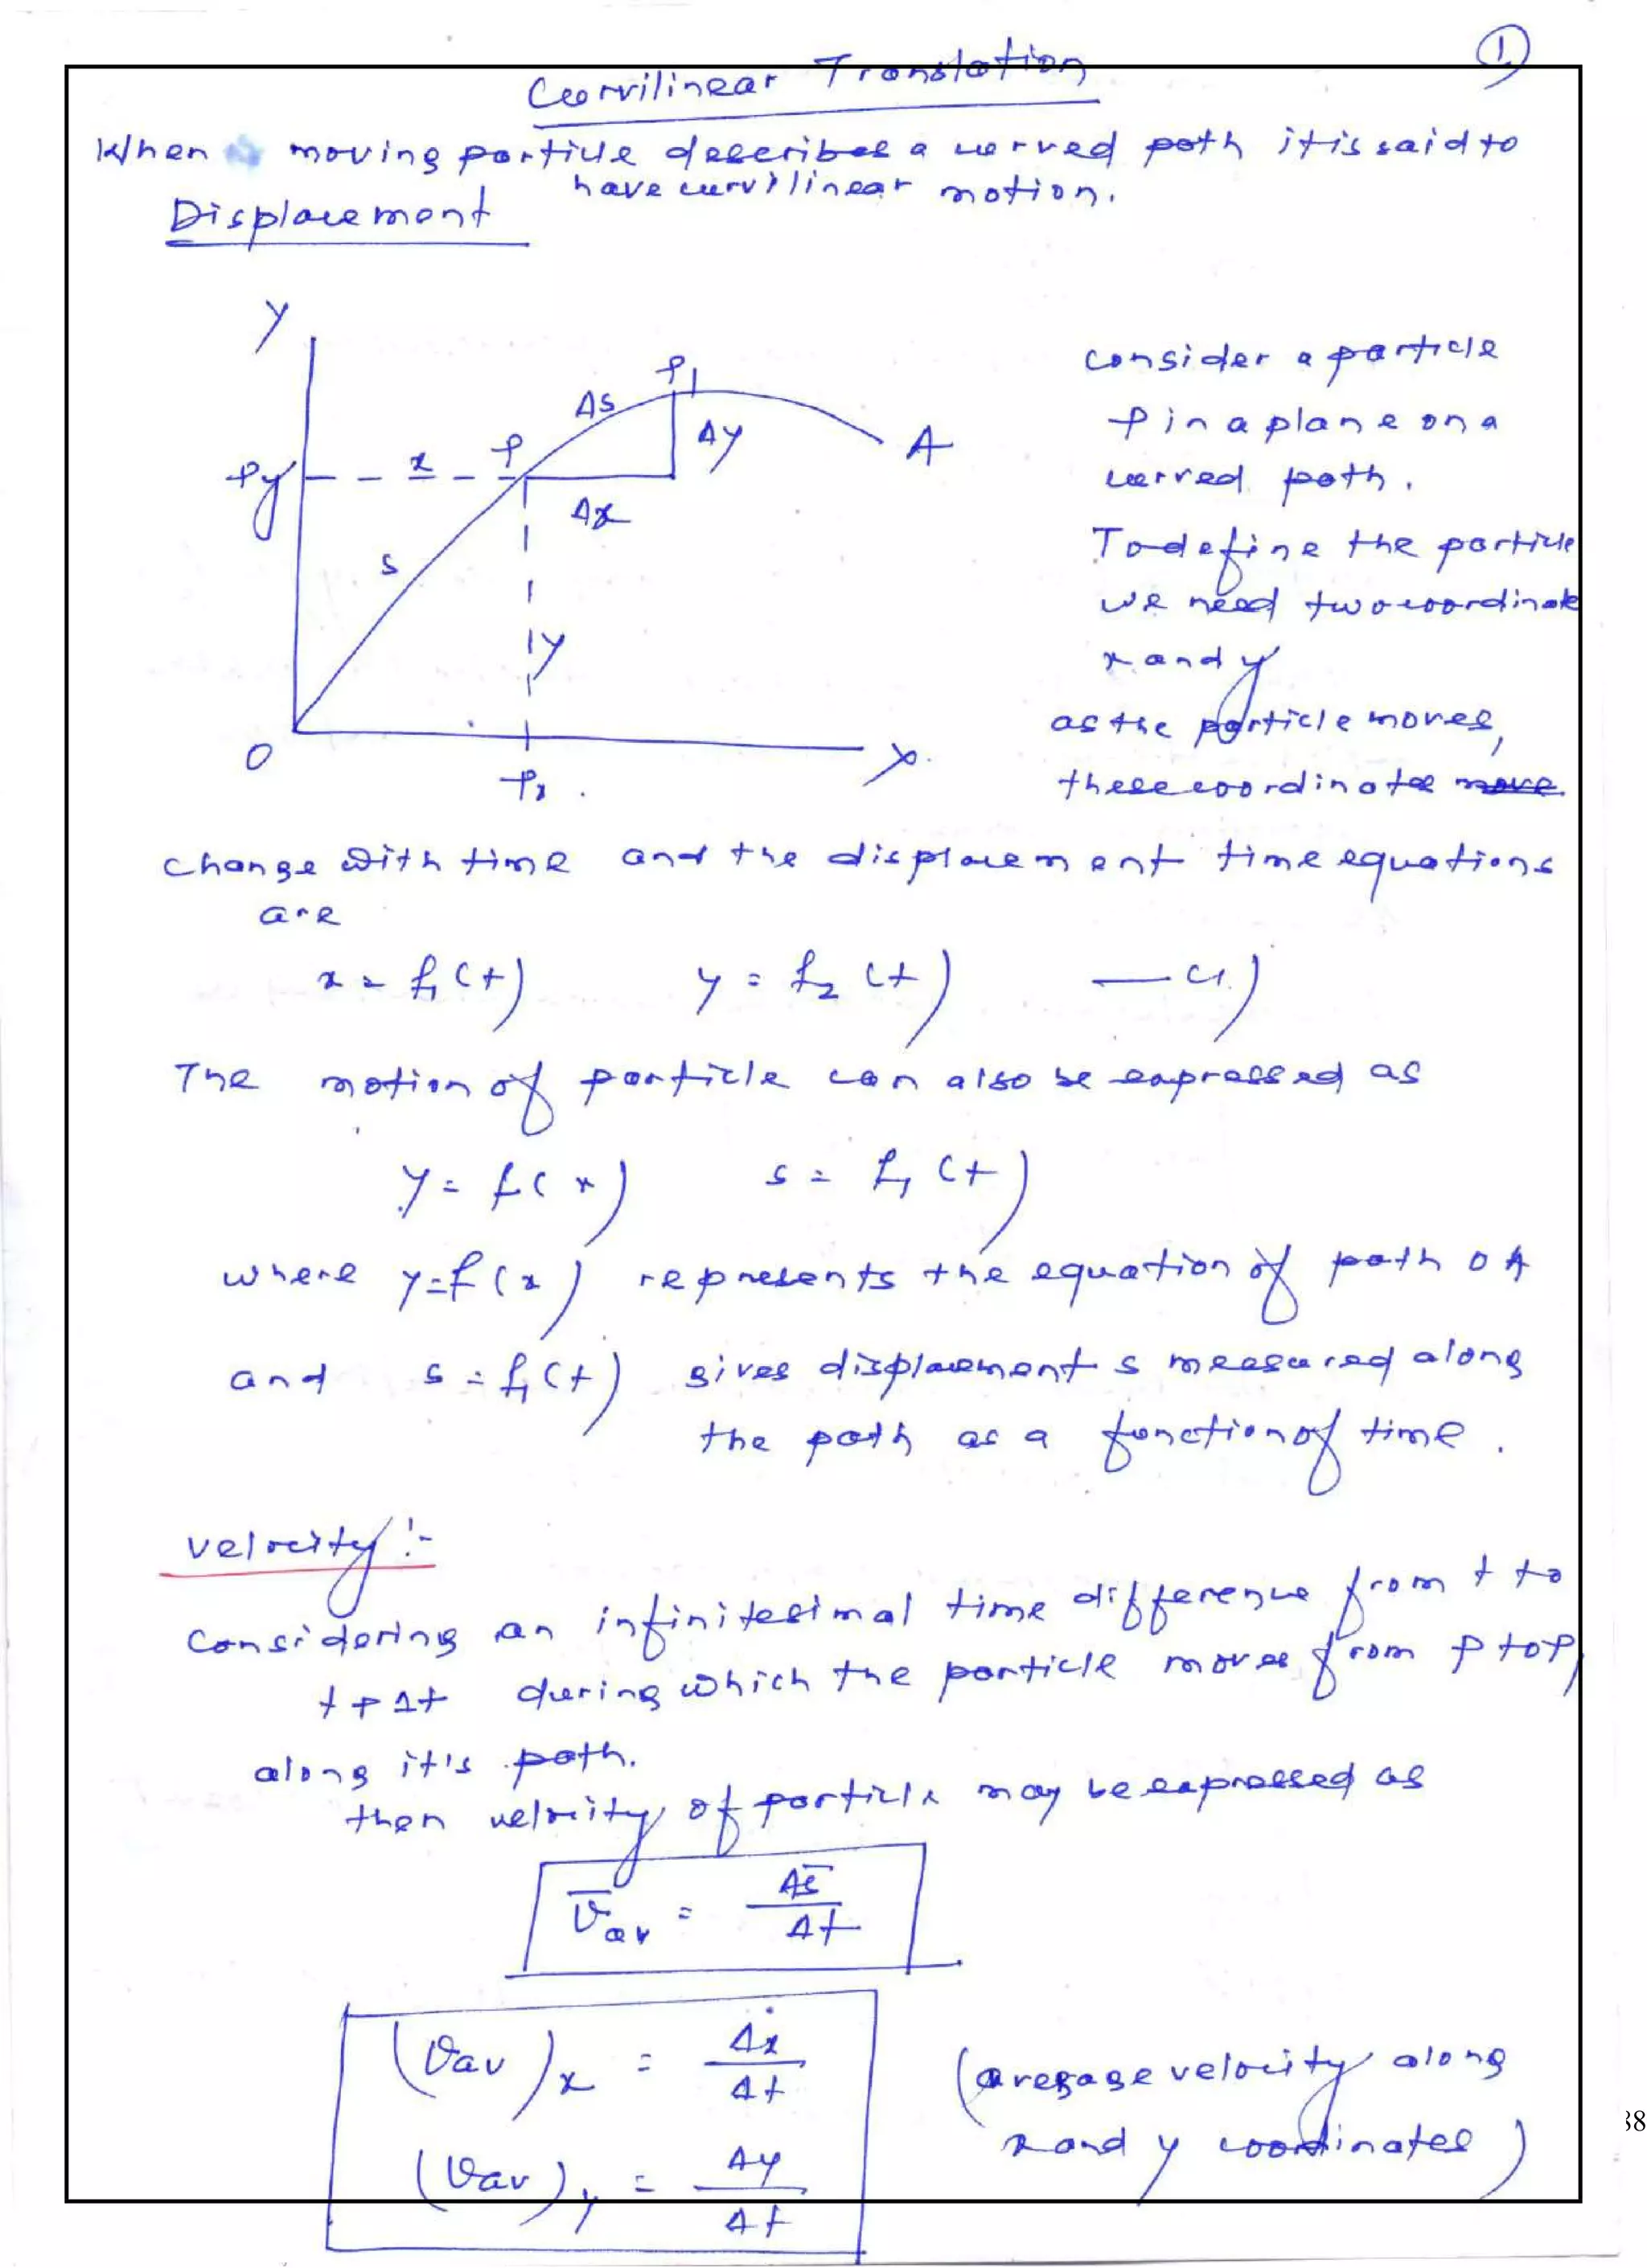 ①
Curvilinear Translation
When a moving particle describes a curved path it is said to
have curvilinear motion.
Displacement
Y
P1
Δs
Δy
A
P
x
Py
Δx
s
y
O
X
Px
Consider a particle
P in a plane on a
curved path.
To define the particle
we need two coordinate
x and y
as the particle moves,
these coordinates move
change with time and the displacement time equations
are
x = f1(t) y = f2(t) —(1)
The motion of particle can also be expressed as
y = f(x) s = f1(t)
where y=f(x) represents the equation of path OA
and s = f1(t) gives displacement s measured along
the path as a function of time.
velocity:-
Considering an infinitesimal time difference from t to
t+Δt during which the particle moves from P to P1
along it's path.
then velocity of particle may be expressed as
v̄av = Δs̄/Δt
(vav)x = Δx/Δt (average velocity along
x and y coordinates)
(vav)y = Δy/Δt
38